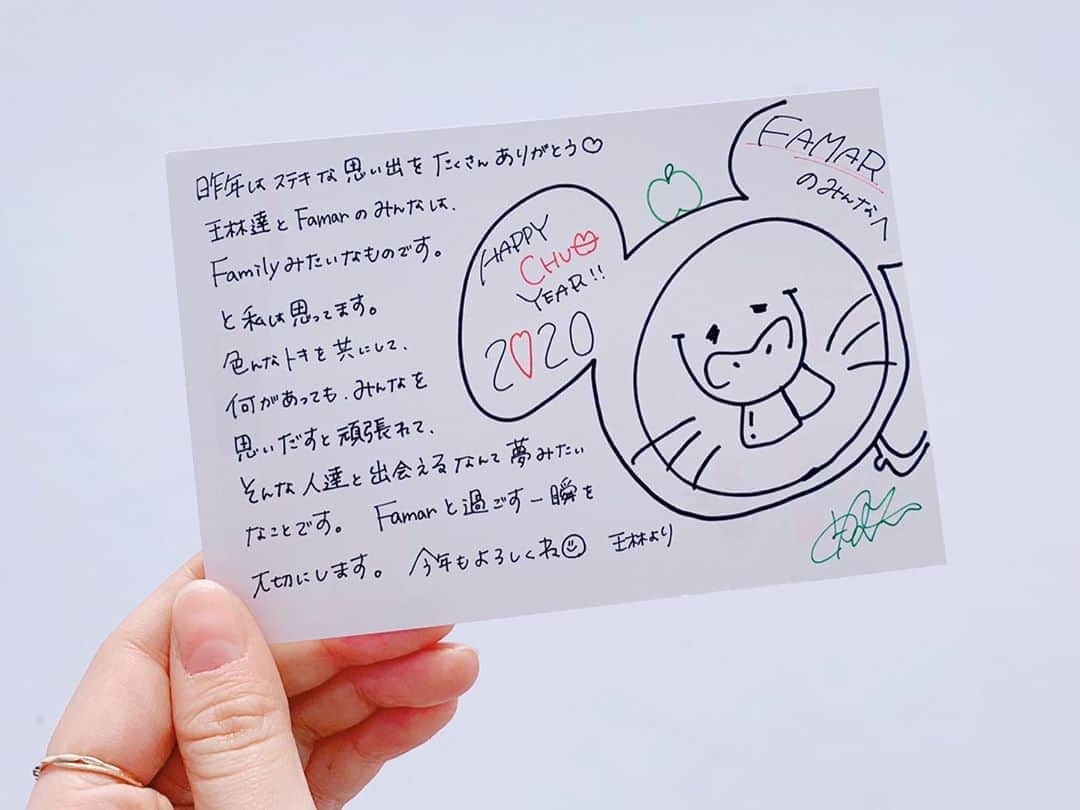 昨年はステキな思い出をたくさんありがとう♡
王林達とFamarのみんなは、
Familyみたいなものです。
と私は思ってます。
色んなトキを共にして、
何があっても、みんなを
思いだすと頑張れて、
そんな人達と出会えるなんて夢みたい
なことです。 Famarと過ごす一瞬を
大切にします。 今年もよろしくね☺ 王林より
HAPPY
CHU
YEAR!!
2020
FAMAR
のみんなへ